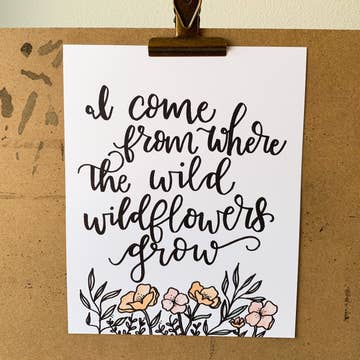 I come
from where
the wild
wildflowers
grow